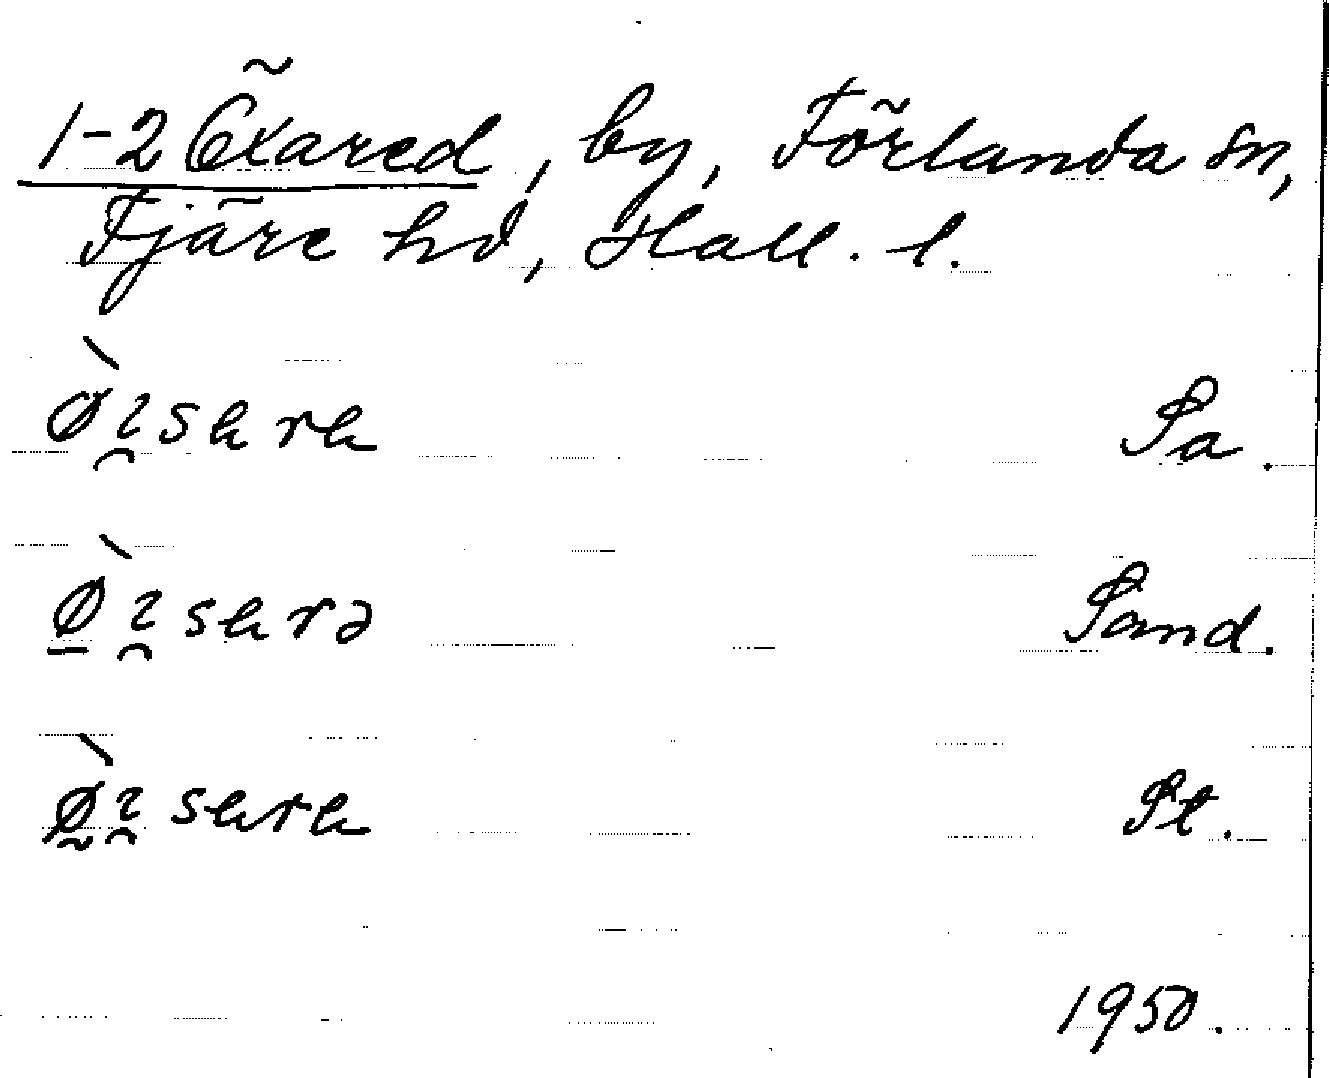 1-2 Öxared, by, Förlanda sn,
Fjäre hd, Hall. l.
Ø̀ı̯sara Sa.
Ø̠̀ı̯sarə Sand.
Ø̰̀ı̯sara St.
1950.